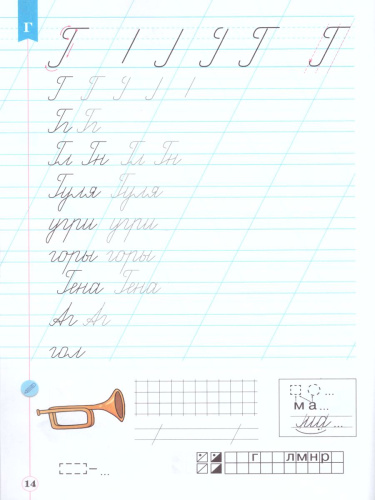 Г
Г Г Г
Г Г
Гл Гн Гл Гн
Гуля Гуля
угри угри
горы горы
Гена Гена
Аг Аг
гол
м а ...
ма ...
– ...
г л м н р
14